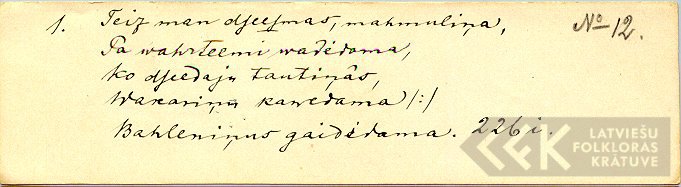 1. Teiz man dseesmas, mahmuliņa, № 12.
Pa wahrteemi wadidama,
Ko dseedaju tautiņâs,
Wakariņu kawedama /:/
Bahleniņus gaididama. 226 i.
LATVIEŠU
FOLKLORAS
KRĀTUVE